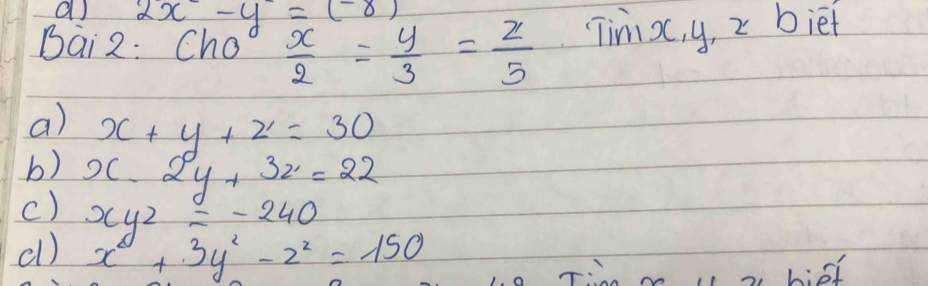 d) 2x² - y = (-8)
Bài 2: Cho x/2 = y/3 = z/5 Tìm x, y, z biết
a) x + y + z = 30
b) x - 2y + 3z = 22
c) xyz = -240
d) x² + 3y² - z² = 150
Tìm x y z biết